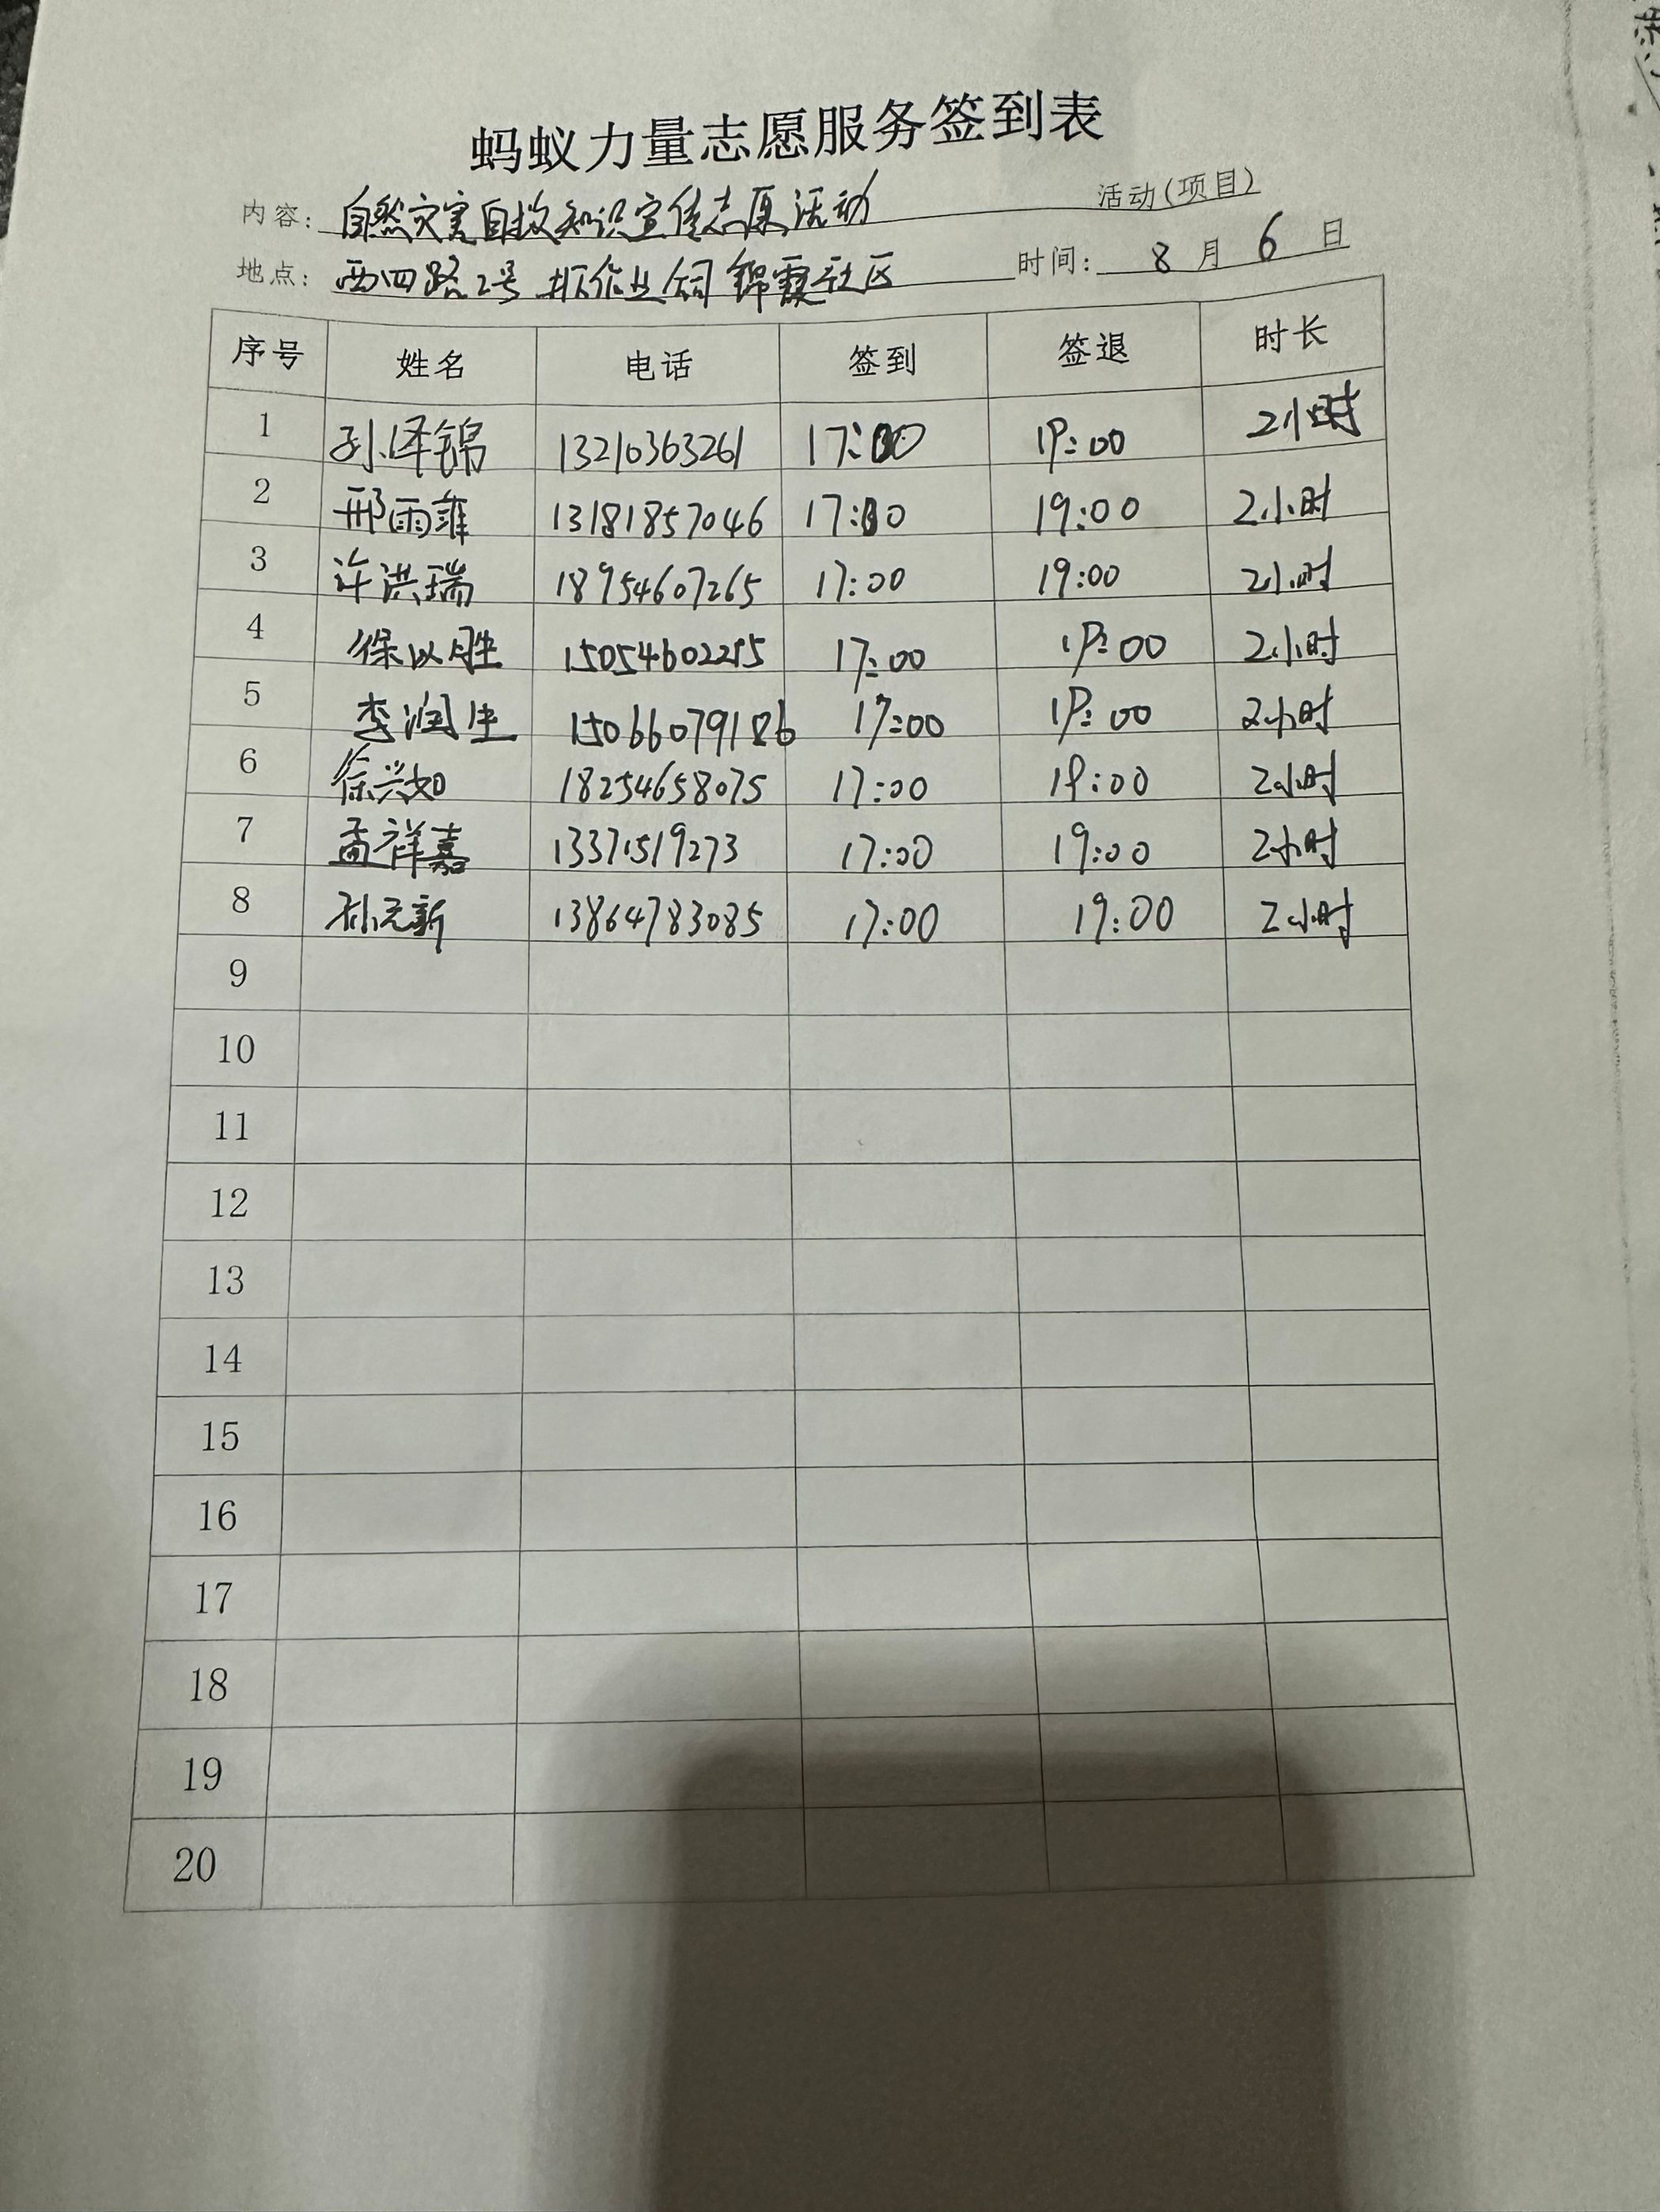 蚂蚁力量志愿服务签到表
内容: 自然灾害自救知识宣传志愿活动 活动(项目)
地点: 西四路2号 作业 锦霞社区 时间: 8 月 6 日
序号 姓名 电话 签到 签退 时长
1 孙泽锦 13210363261 17:00 19:00 2小时
2 邢雨薇 13181857046 17:00 19:00 2小时
3 许洪瑞 18954607265 17:00 19:00 2小时
4 徐以胜 17:00 19:00 2小时
5 李润生 15066079186 17:00 19:00 2小时
6 徐兴如 18254658075 17:00 19:00 2小时
7 孟祥嘉 13371519273 17:00 19:00 2小时
8 孙元新 13864783085 17:00 19:00 2小时
9
10
11
12
13
14
15
16
17
18
19
20